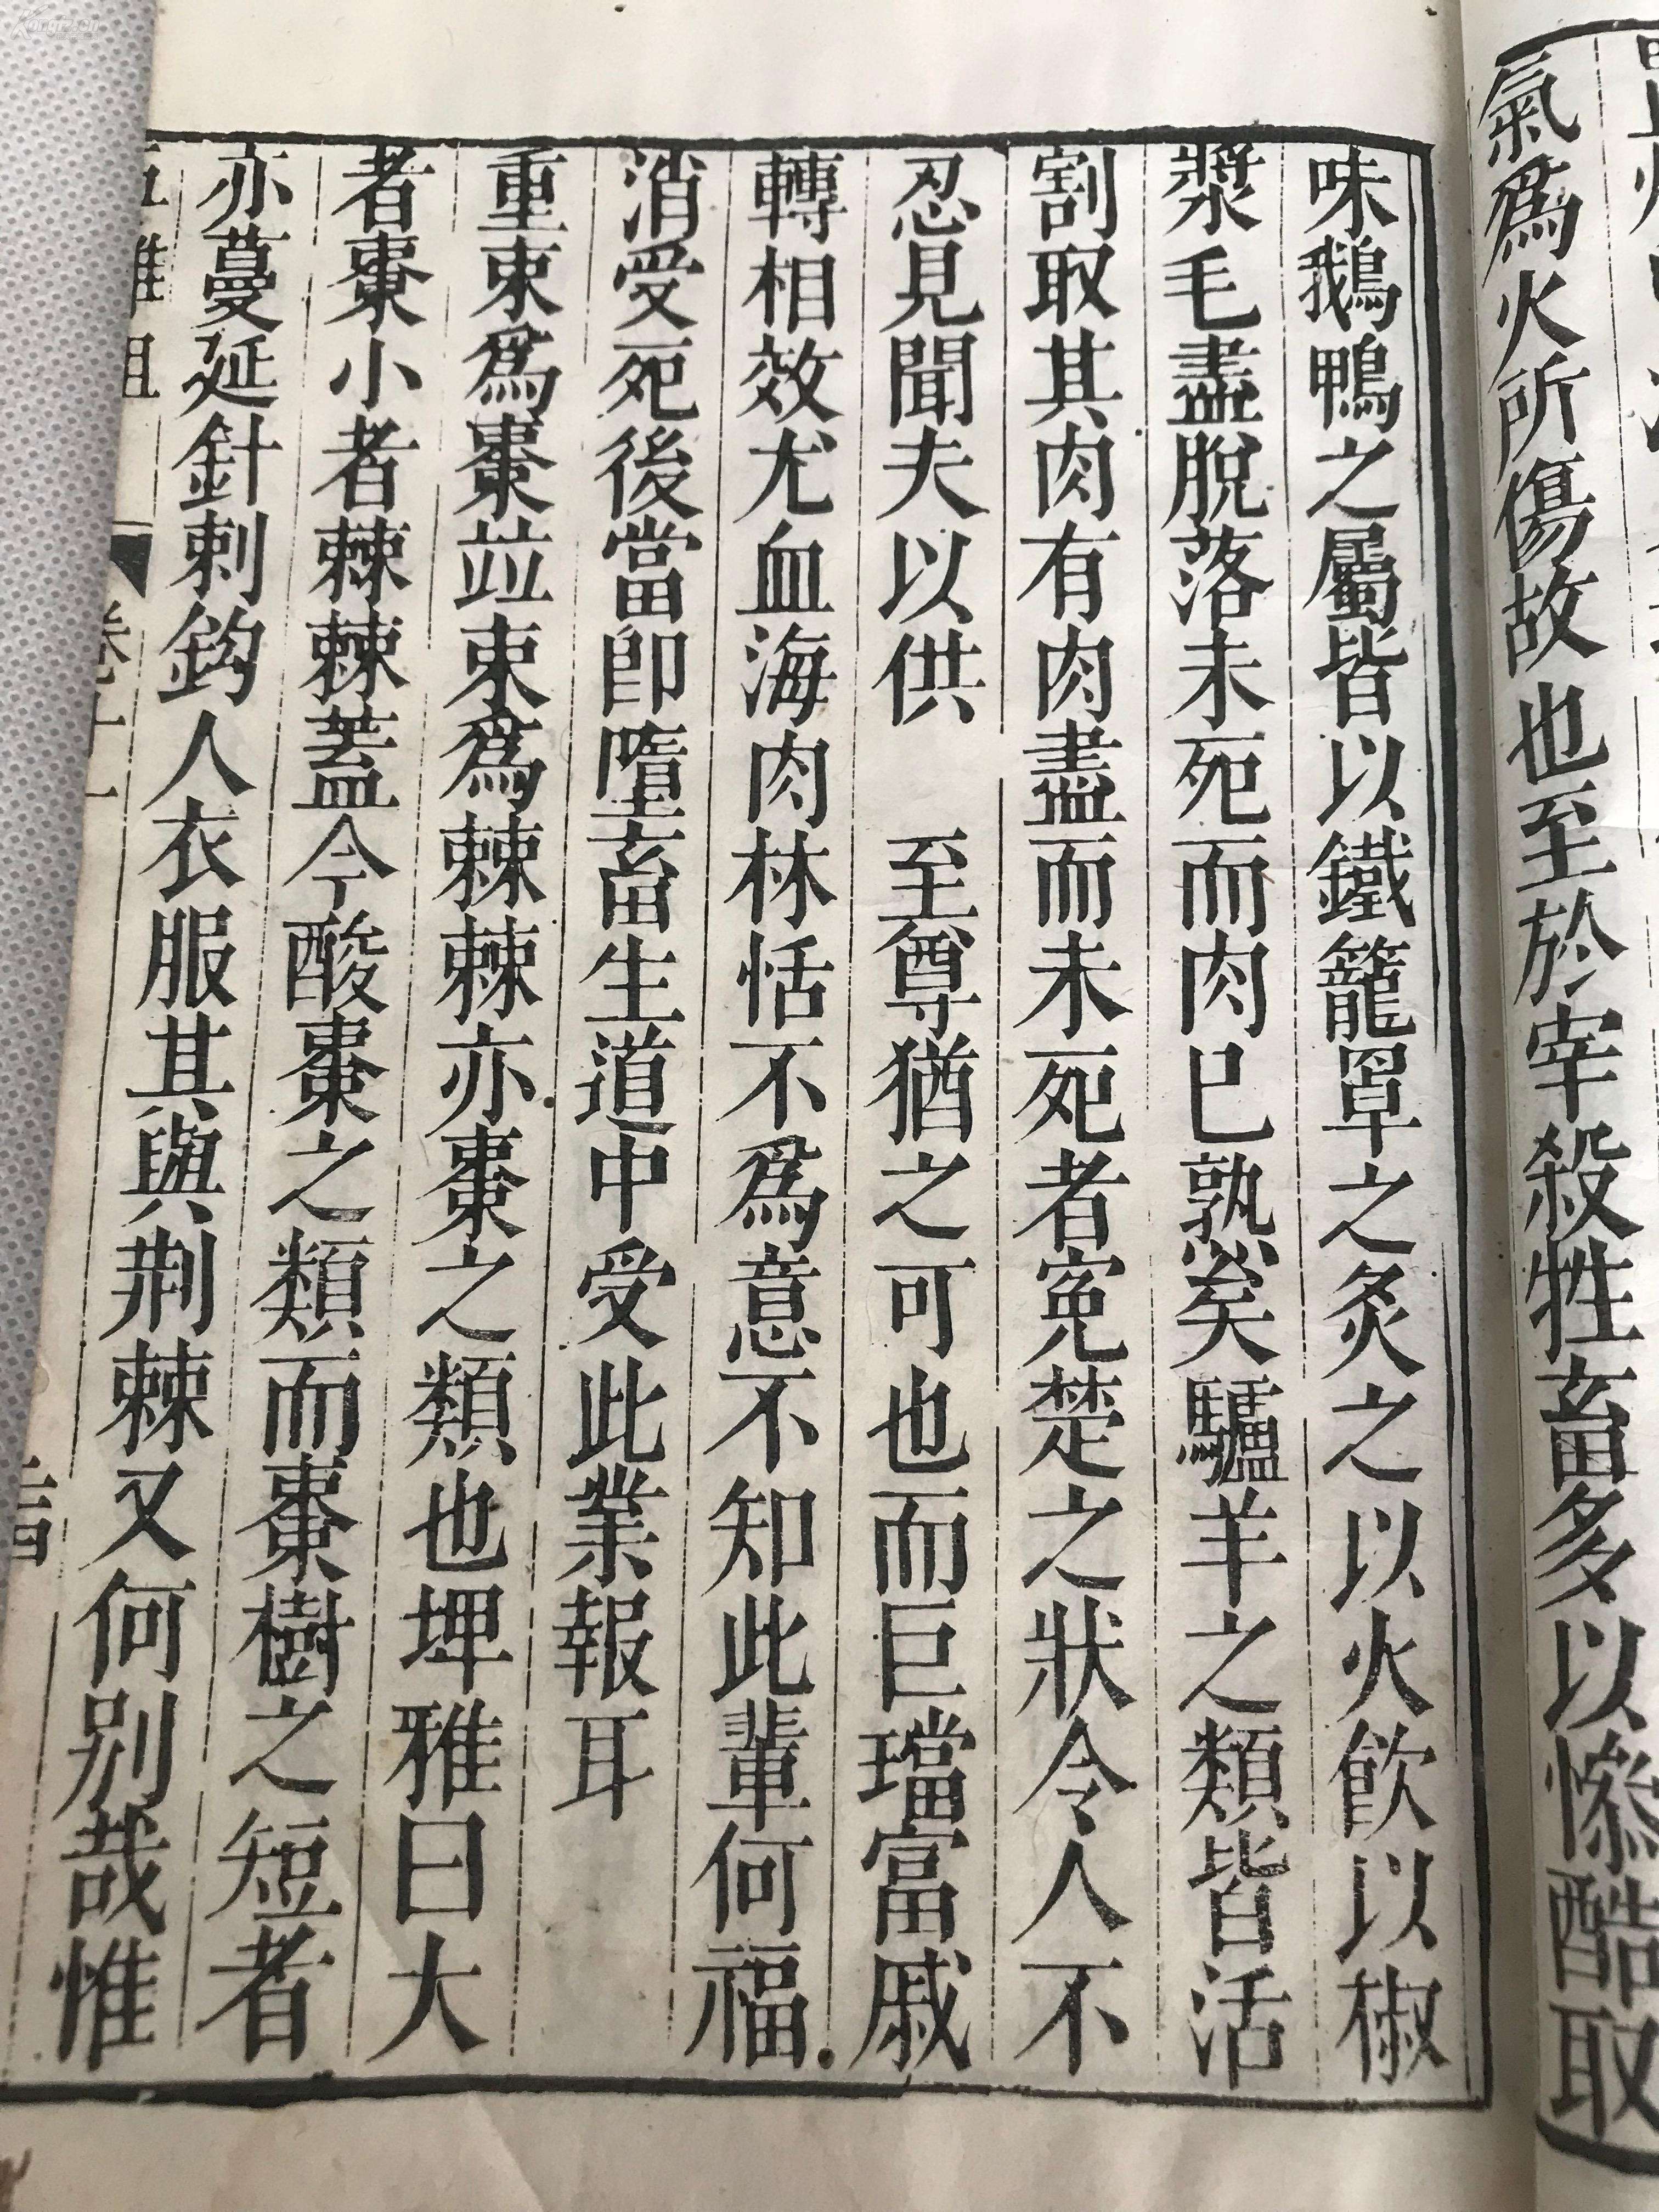 氣爲火所傷故也至於宰殺牲畜多以慘酷取
味鵝鴨之屬皆以鐵籠罩之炙之以火飲以椒
漿毛盡脫落未死而肉已熟矣驢羊之類皆活
割取其肉有肉盡而未死者寃楚之狀令人不
忍見聞夫以供　至尊猶之可也而巨璫富戚
轉相效尤血海肉林恬不爲意不知此輩何福
消受死後當即墮畜生道中受此業報耳
重朿爲棗竝朿爲棘棘亦棗之類也埤雅曰大
者棗小者棘棘蓋今酸棗之類而棗樹之短者
亦蔓延針刺鈎人衣服其與荆棘又何别哉惟
五雜俎 卷十一
Kongfz.cn